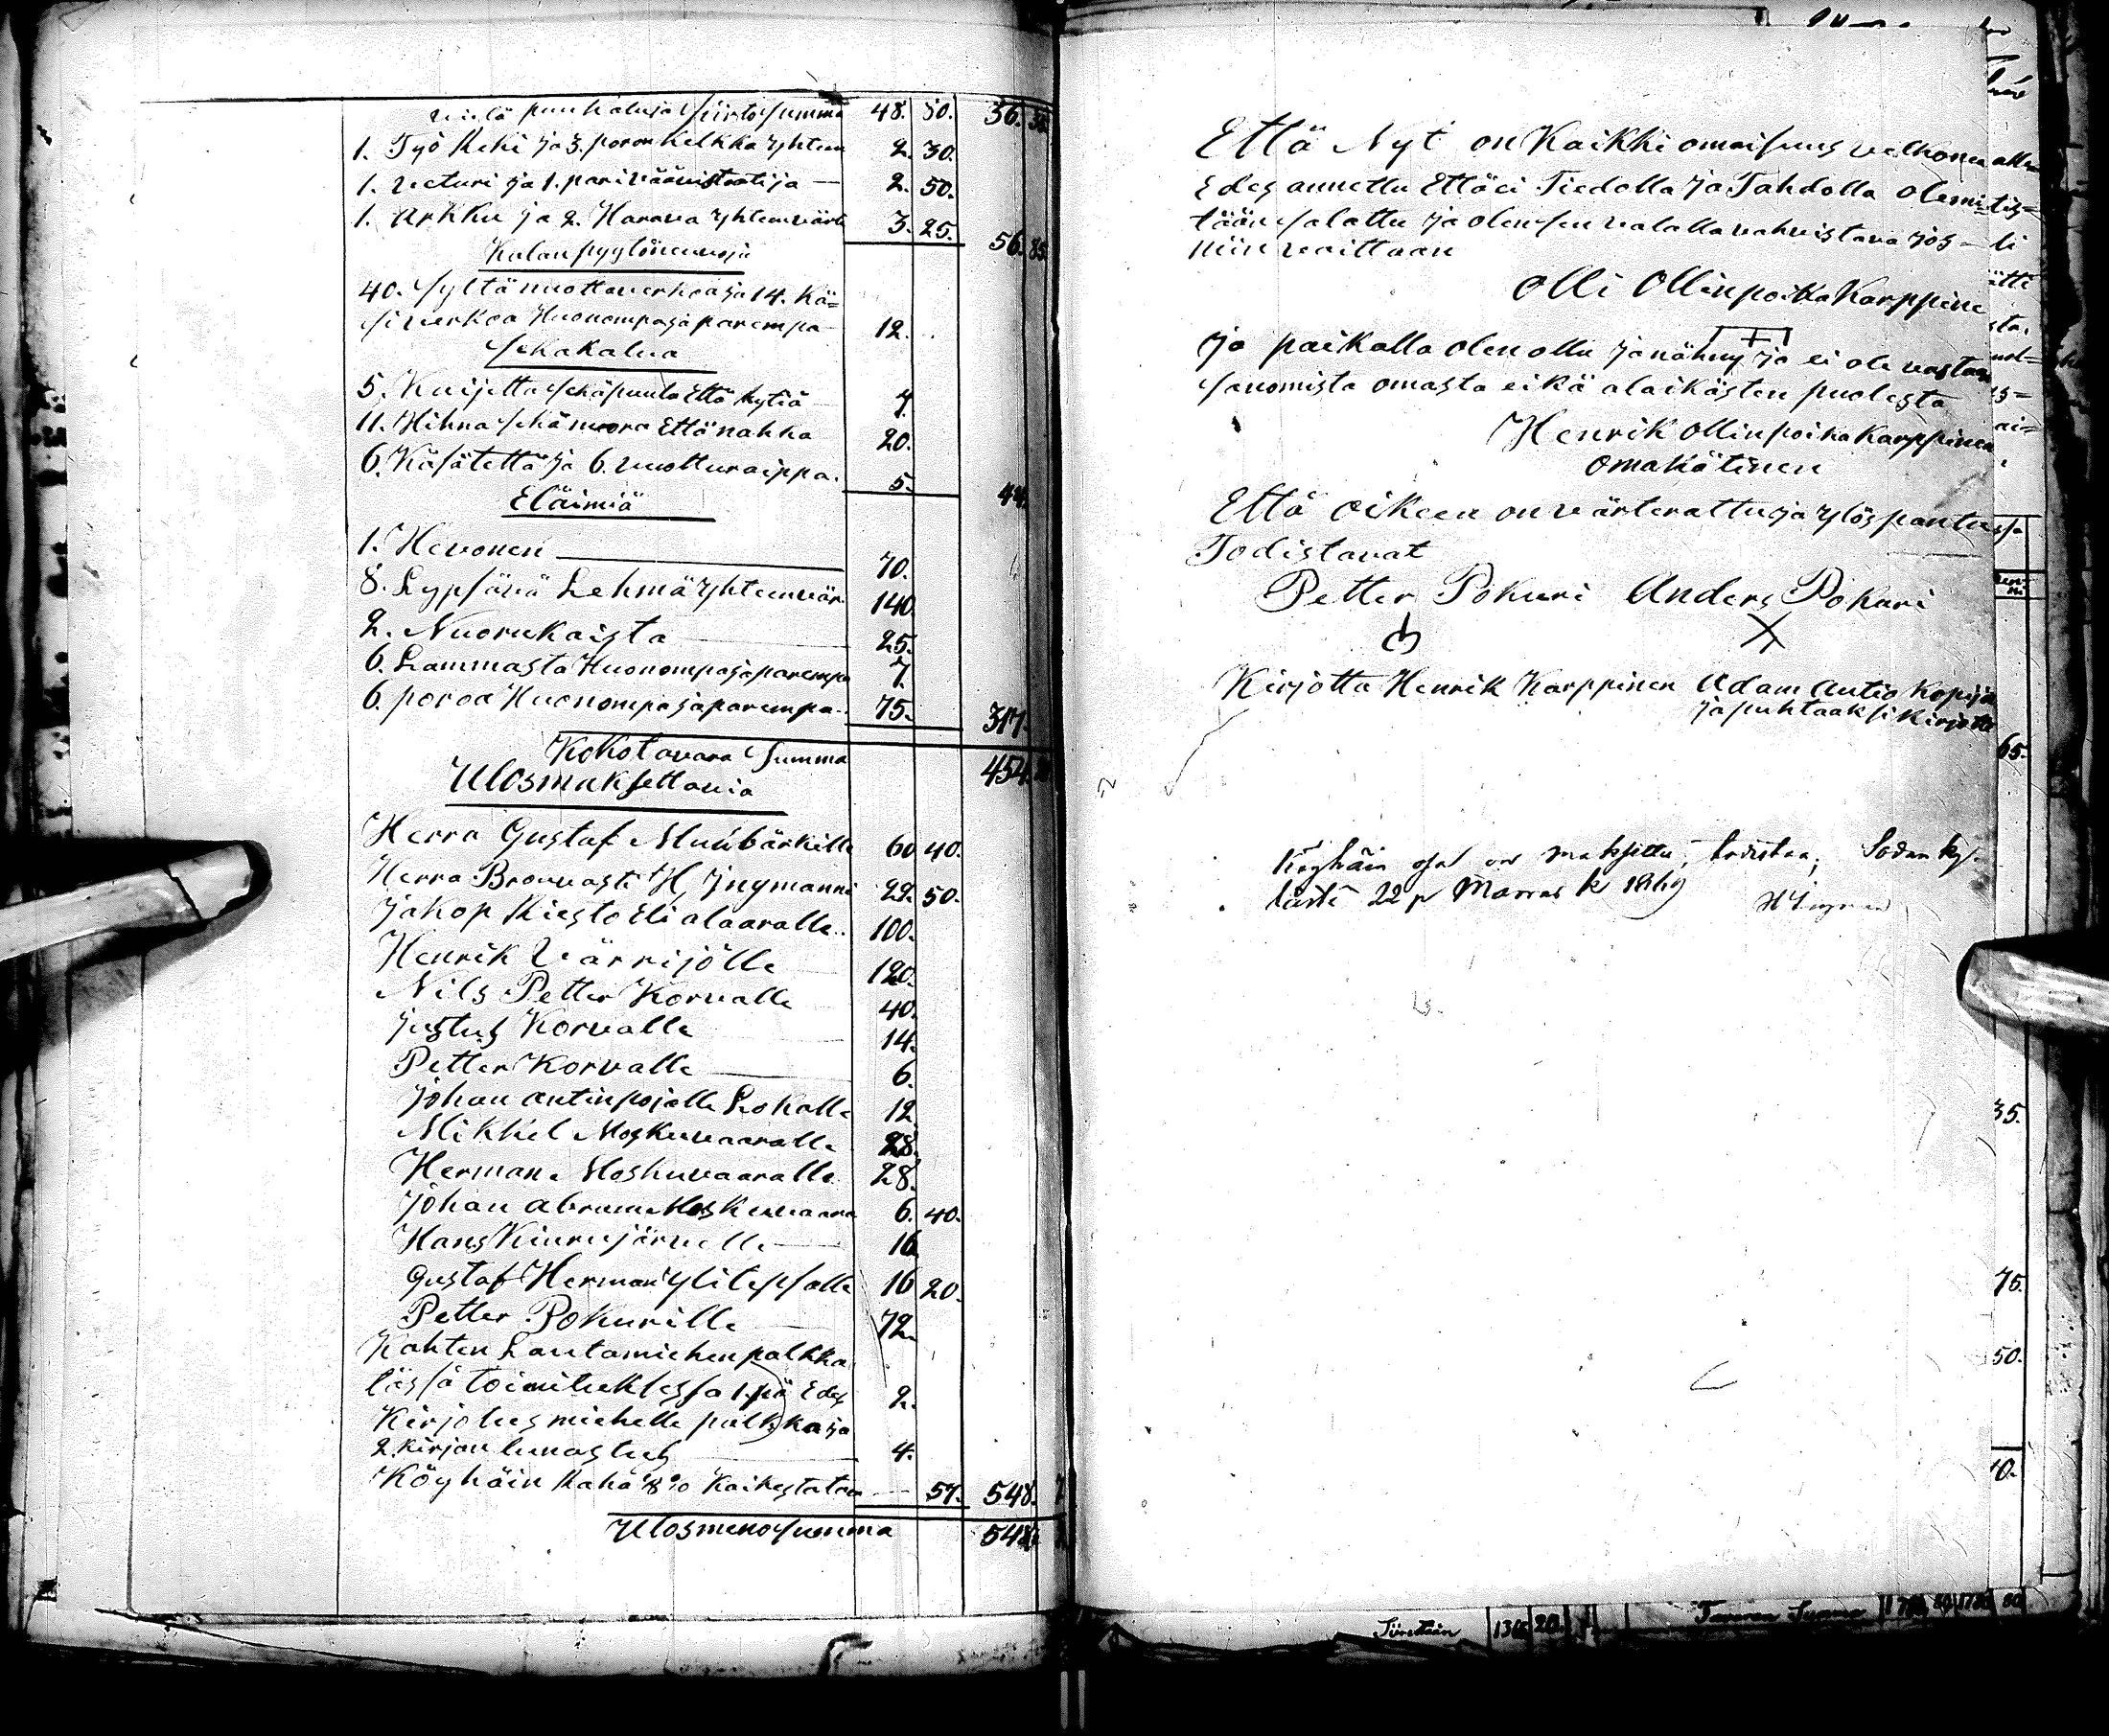 vielä puu kaluja Siirto Summa 48. 50. 36.
1. Työ Reki ja 3. poron kelkka yhteen 2. 30.
1. veturi ja 1. pari 2. 50.
1. Arkku ja 2. Harava yhteenvärt 3. 25. 56. 85.
Kalan pyytöneuvoja
40. Syltä nuottaverkoa ja 14. Kä=
siverkoa Huonompa ja parempa 12.
Sekakalua
5. Kuijetta sekä puuta Että Rytiä 7.
11. Hihna sekä Että nahka 20.
6. Käsätettä ja 6. vuotturaippa. 5. 44.
Eläimiä
1. Hevonen 70.
8. Lypsävä Lehmä yhteenvär 140.
2. Nuorukaista 25.
6. Lammasta Huonompa ja parempa 7.
6. poroa Huonompa ja parempa 75. 317.
Koko tavara Summa 454.
Ulosmaksettavia
Herra Gustaf 60 40.
Herra Brovasti H, Jngmanni 22. 50.
Jakop Kiesto Eli alaaralle.. 100.
Henrik Värrijölle 120.
Nils Petter Korvalle 40.
Justus Korvalle 14.
Petter Korvalle 6.
Johan antinpojalle Lokalle 12
Mikkel Moskuvaaralle 28.
Herman Moskuvaaralle 28.
Johan abram Moskuvaara 6. 40.
Hans Kiurujärvelle 16
Gustaf Herman ylitessalle 16 20.
Petter Pokurille 72.
Kahten Lautamiehen palkka
tässä toimituksessa 1. pä Edes 2.
Kirjotusmiehelle palkka ja
2. kirjan lunastus 4.
Köyhäin Raha 1/8 % Kaikesta 57. 548.
Ulosmeno Summa 548.
Että Nyt on Kaikki omaisuus
Edes annettu Ettäei Tiedolla ja Tahdolla ole mi=
tään salattu ja olen sen valalla vahvistava jos
niin vaittaan
Olli Ollinpoika Karppine
ja paikalla olen ollu ja nähny ja ei ole vastan
sanomista omasta eikä alaikästen puolesta
Henrik Ollinpoika Karppinen
omakätinen
Että oikeen on värterattu ja ylöspantu
Todistavat
Petter Pokuri Anders Pokuri
Kirjotta Henrik Karppinen Adam Autio Kopijo
ja puhtaaksi Kirjotta
Köyhäin osa on maksettu, todistaa; Sodankyl.
lästä 22 p Marras k 1869
65.
35.
75.
50.
10.
Siiretään 20 Tavaran Summa